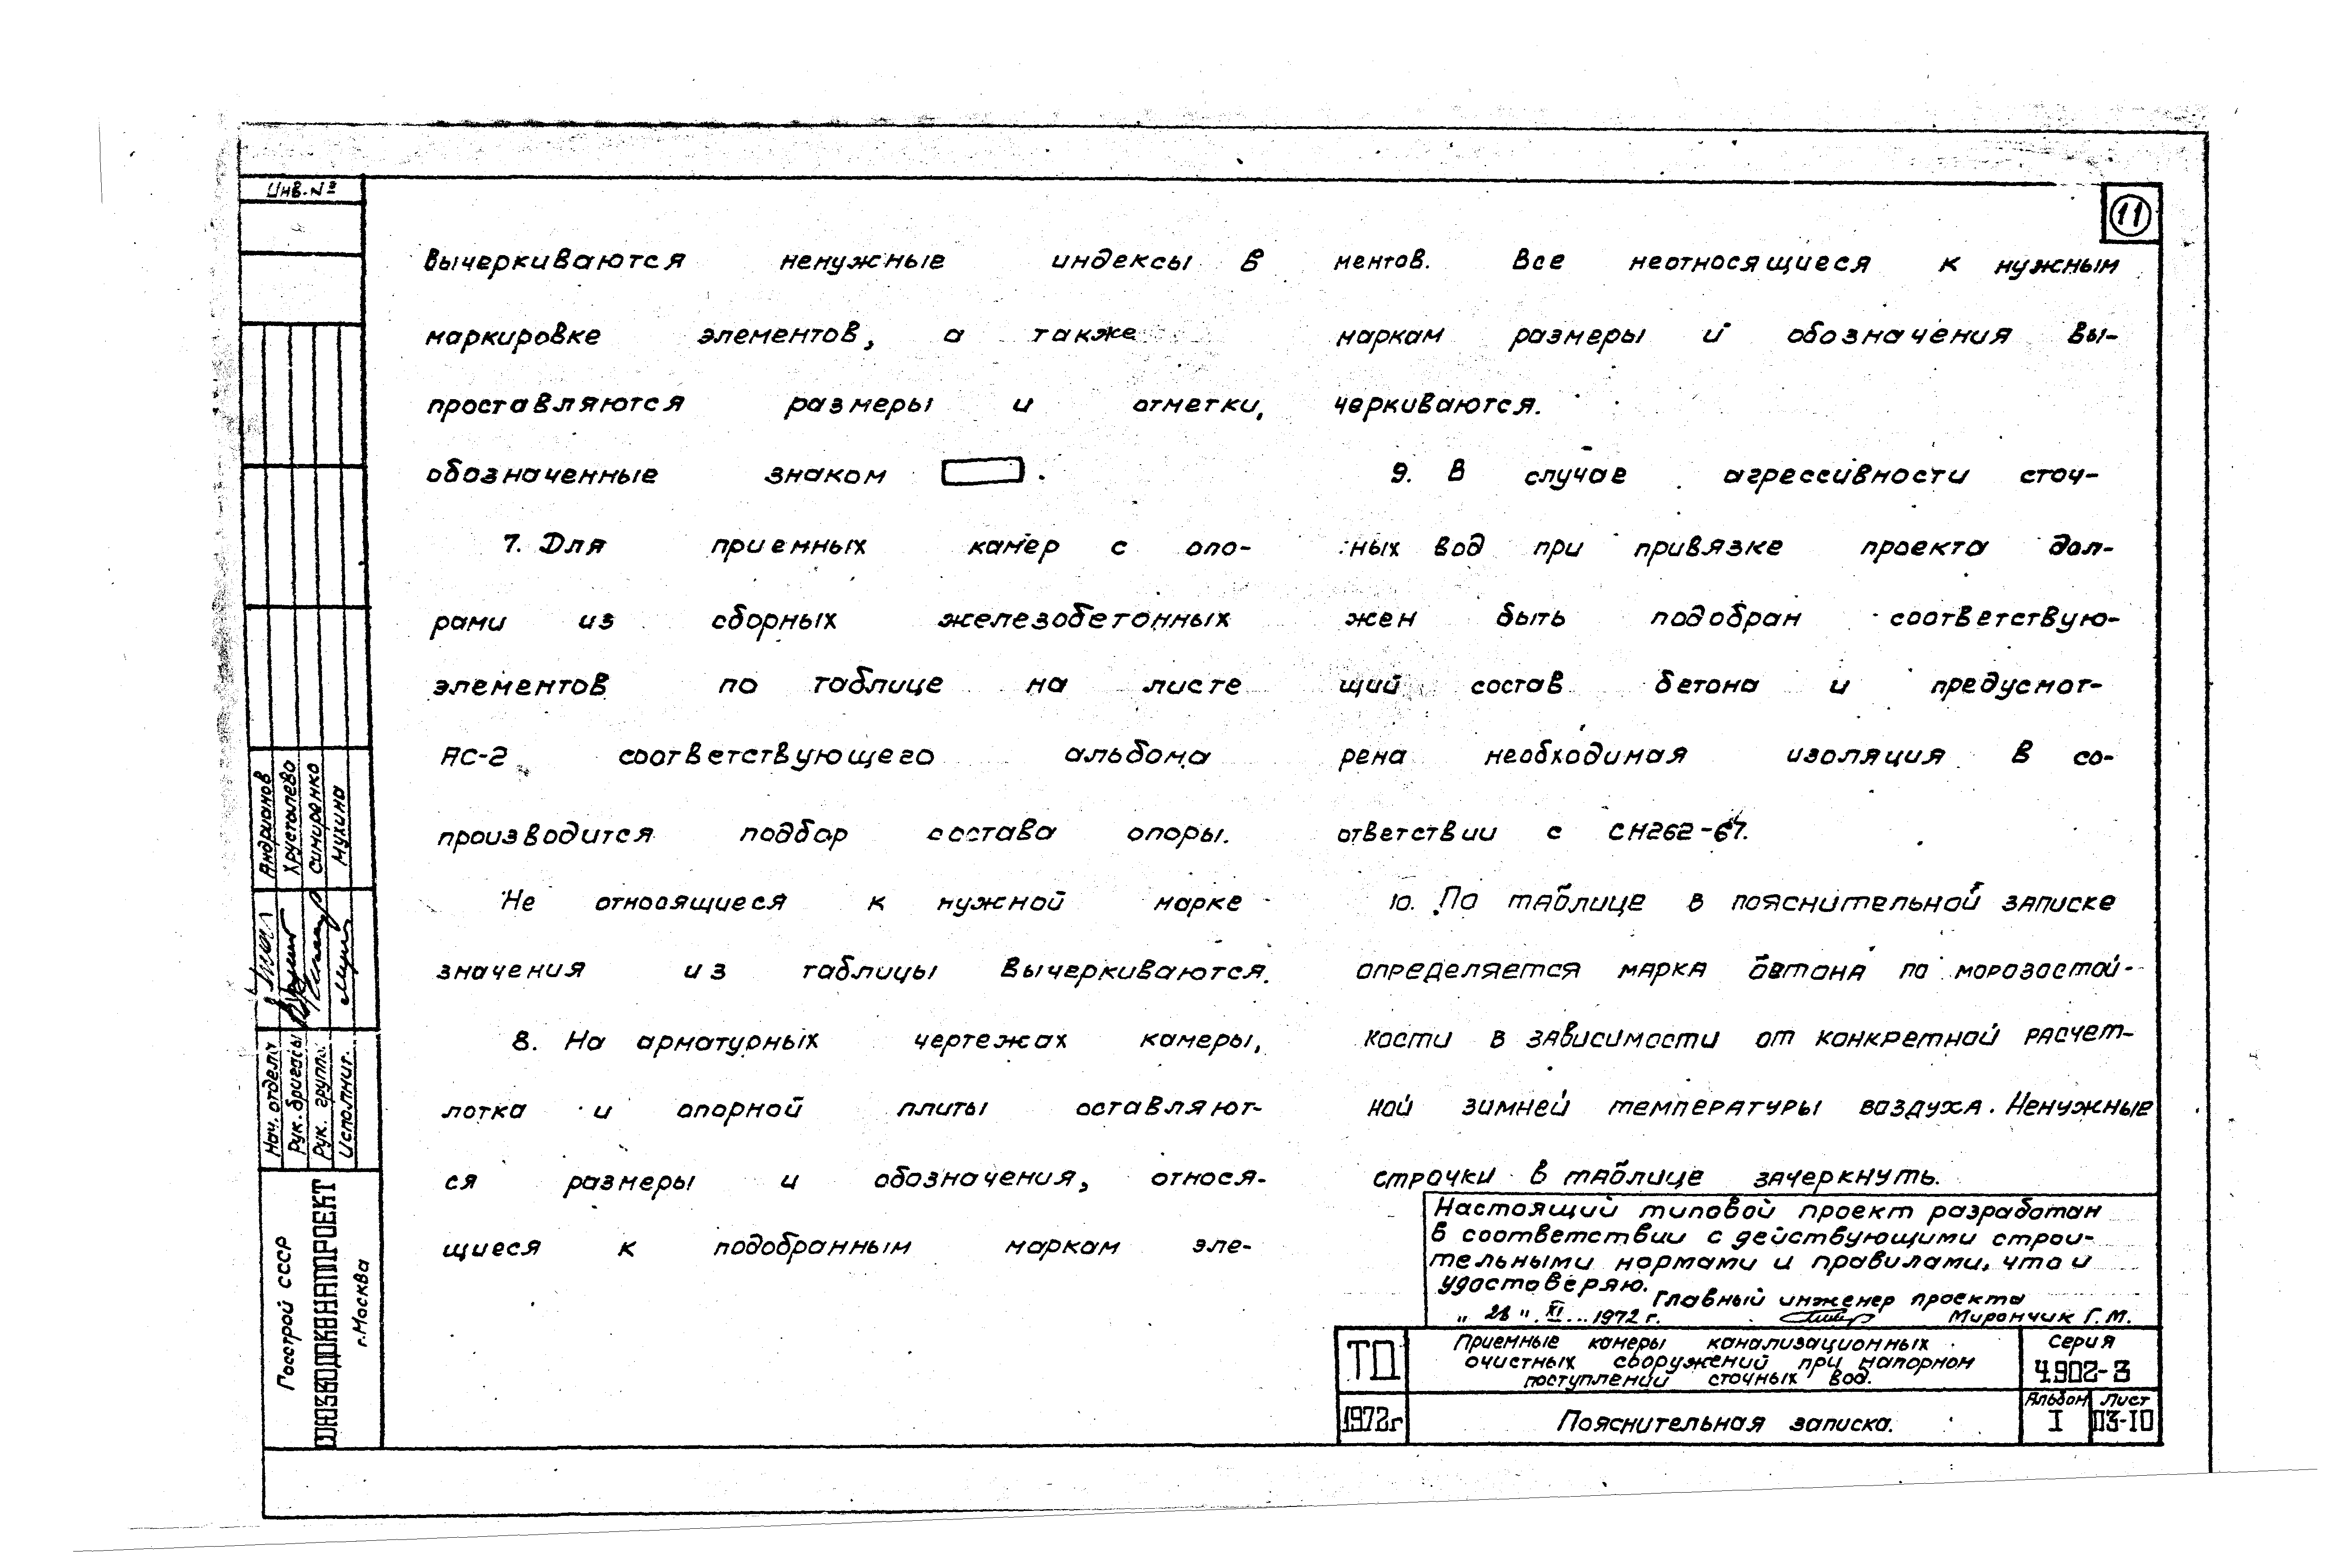 Инв.№
11
вычеркиваются ненужные индексы в
маркировке элементов, а также
проставляются размеры и отметки,
обозначенные знаком .
7. Для приемных камер с опо-
рами из сборных железобетонных
элементов по таблице на листе
АС-2 соответствующего альбома
производится подбор состава опоры.
Не относящиеся к нужной марке
значения из таблицы вычеркиваются.
8. На арматурных чертежах камеры,
лотка и опорной плиты оставляют-
ся размеры и обозначения, относя-
щиеся к подобранным маркам эле-
ментов. Все неотносящиеся к нужным
маркам размеры и обозначения вы-
черкиваются.
9. В случае агрессивности сточ-
ных вод при привязке проекта дол-
жен быть подобран соответствую-
щий состав бетона и предусмот-
рена необходимая изоляция в со-
ответствии с СН262-67.
10. По таблице в пояснительной записке
определяется марка бетона по морозостой-
кости в зависимости от конкретной расчет-
ной зимней температуры воздуха. Ненужные
строчки в таблице зачеркнуть.
Настоящий типовой проект разработан
в соответствии с действующими строи-
тельными нормами и правилами, что и
удостоверяю.
Главный инженер проекта
„ 28 " XI 1972 г. Мирончик Г.М.
ТД
Приемные камеры канализационных
очистных сооружений при напорном
поступлении сточных вод.
Серия
4.902-3
1972г
Пояснительная записка.
Альбом
I
Лист
ПЗ-10
Нач. отдела Андрианов
Рук. бригады Хрусталева
Рук. группы Симиренко
Исполнит. Мухина
Госстрой СССР
СОЮЗВОДОКАНАЛПРОЕКТ
г.Москва